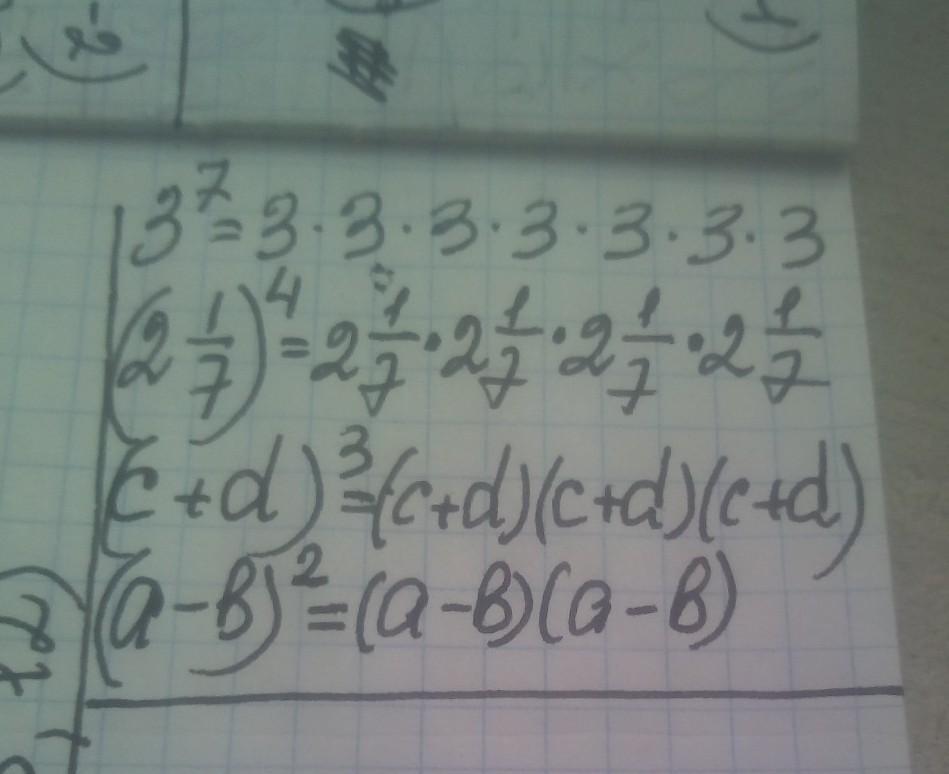 3⁷ = 3 · 3 · 3 · 3 · 3 · 3 · 3
(2 1/7)⁴ = 2 1/7 · 2 1/7 · 2 1/7 · 2 1/7
(c + d)³ = (c + d)(c + d)(c + d)
(a − b)² = (a − b)(a − b)